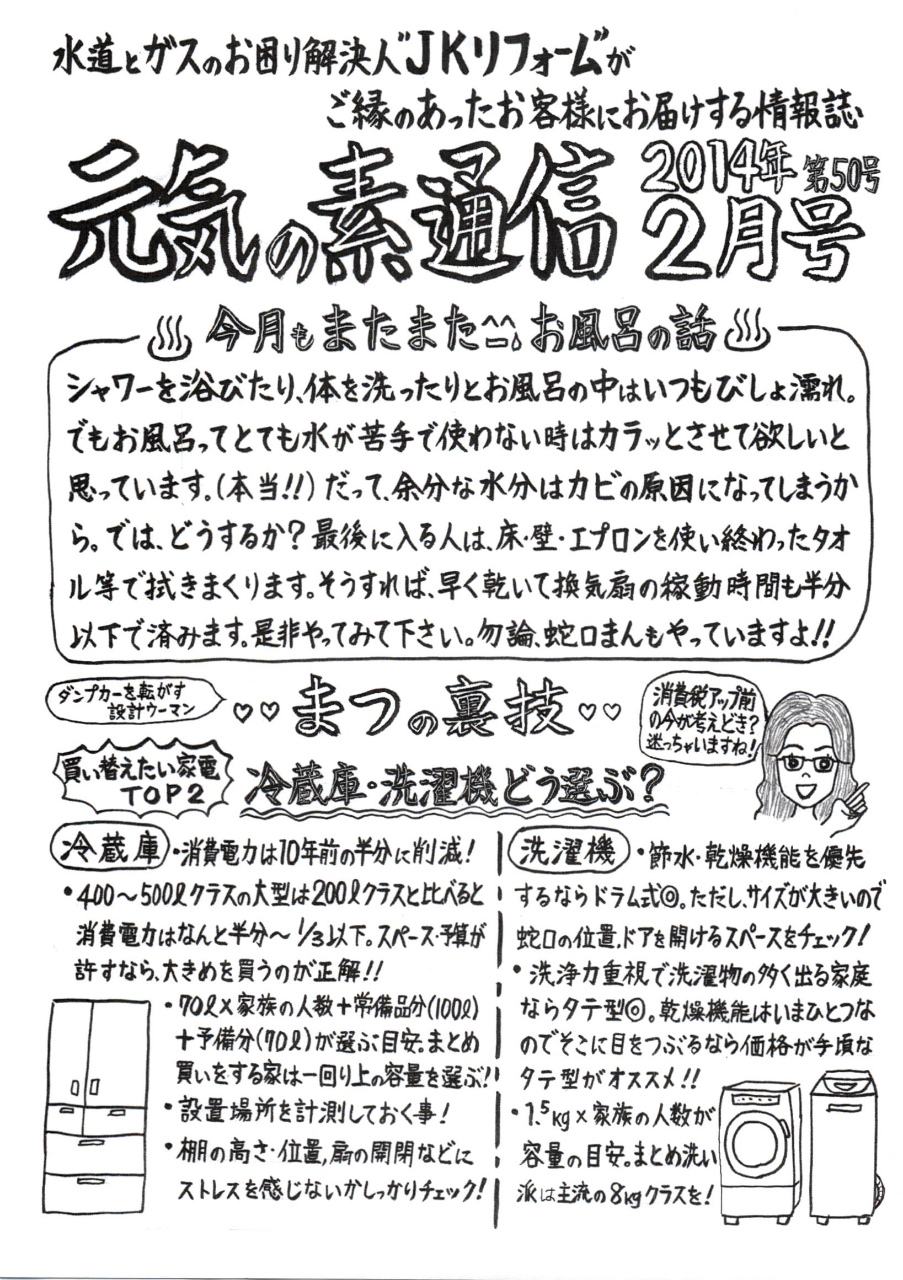 水道とガスのお困り解決人“JKリフォーム”が
ご縁のあったお客様にお届けする情報誌
元気の素通信
2014年 第50号
2月号
今月もまたまた^^;お風呂の話
シャワーを浴びたり、体を洗ったりとお風呂の中はいつもびしょ濡れ。
でもお風呂ってとても水が苦手で使わない時はカラッとさせて欲しいと
思っています。(本当!!)だって、余分な水分はカビの原因になってしまうか
ら。では、どうするか?最後に入る人は、床・壁・エプロンを使い終わったタオ
ル等で拭きまくります。そうすれば、早く乾いて換気扇の稼動時間も半分
以下で済みます。是非やってみて下さい。勿論、蛇口まんもやっていますよ!!
ダンプカーを転がす
設計ウーマン
♡♡まつの裏技♡♡
消費税アップ前
の今が考えどき?
迷っちゃいますね!
買い替えたい家電
TOP2
冷蔵庫・洗濯機どう選ぶ?
冷蔵庫・消費電力は10年前の半分に削減!
・400〜500ℓクラスの大型は200ℓクラスと比べると
消費電力はなんと半分〜1/3以下。スペース・予算が
許すなら、大きめを買うのが正解!!
・70ℓ×家族の人数+常備品分(100ℓ)
+予備分(70ℓ)が選ぶ目安。まとめ
買いをする家は一回り上の容量を選ぶ!
・設置場所を計測しておく事!
・棚の高さ・位置,扉の開閉などに
ストレスを感じないかしっかりチェック!
洗濯機・節水・乾燥機能を優先
するならドラム式◎。ただし、サイズが大きいので
蛇口の位置、ドアを開けるスペースをチェック!
・洗浄力重視で洗濯物の多く出る家庭
ならタテ型◎。乾燥機能はいまひとつな
のでそこに目をつぶるなら価格が手頃な
タテ型がオススメ!!
・1.5kg×家族の人数が
容量の目安。まとめ洗い
派は主流の8kgクラスを!